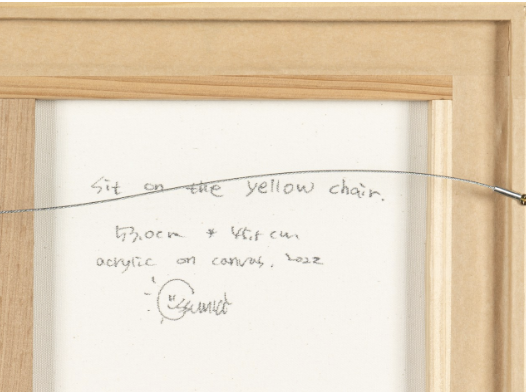 Sit on the yellow chair.
53.0cm * 45.5 cm
acrylic on canvas. 2022